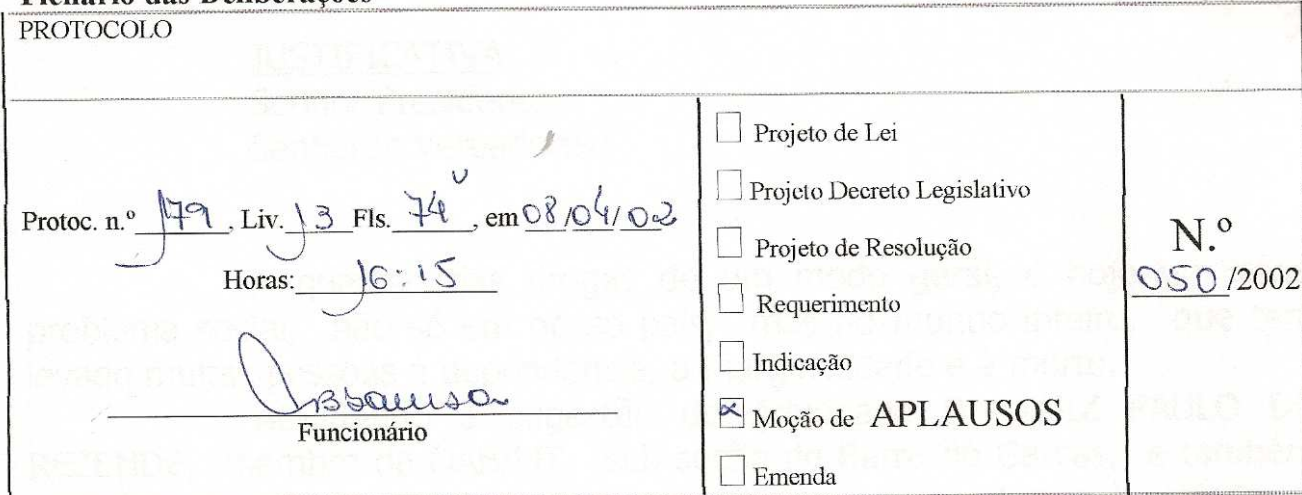 Plenário das Deliberações
PROTOCOLO
Protoc. n.º 179, Liv. 13 Fls. 74v, em 08/04/02
Horas: 16:15
Funcionário
Projeto de Lei
Projeto Decreto Legislativo
Projeto de Resolução
Requerimento
Indicação
Moção de APLAUSOS
Emenda
N.º
050/2002